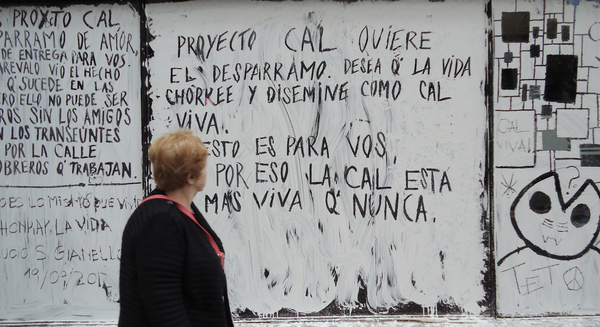 S PROYECTO CAL
PARRAMO DE AMOR,
DE ENTREGA PARA VOS.
AREVALO VIO EL HECHO
Q SUCEDE EN LAS
ERO ELLO NO PUEDE SER
ROS SIN LOS AMIGOS
N LOS TRANSEUNTES
POR LA CALLE
OBREROS Q' TRABAJAN.
LA VIDA
19/09/201
PROYECTO CAL QUIERE
EL DESPARRAMO. DESEA Q' LA VIDA
CHORREE Y DISEMINE COMO CAL
VIVA.
ESTO ES PARA VOS,
POR ESO LA CAL ESTA
MAS VIVA Q' NUNCA.
CAL
VIVA
?
TETO